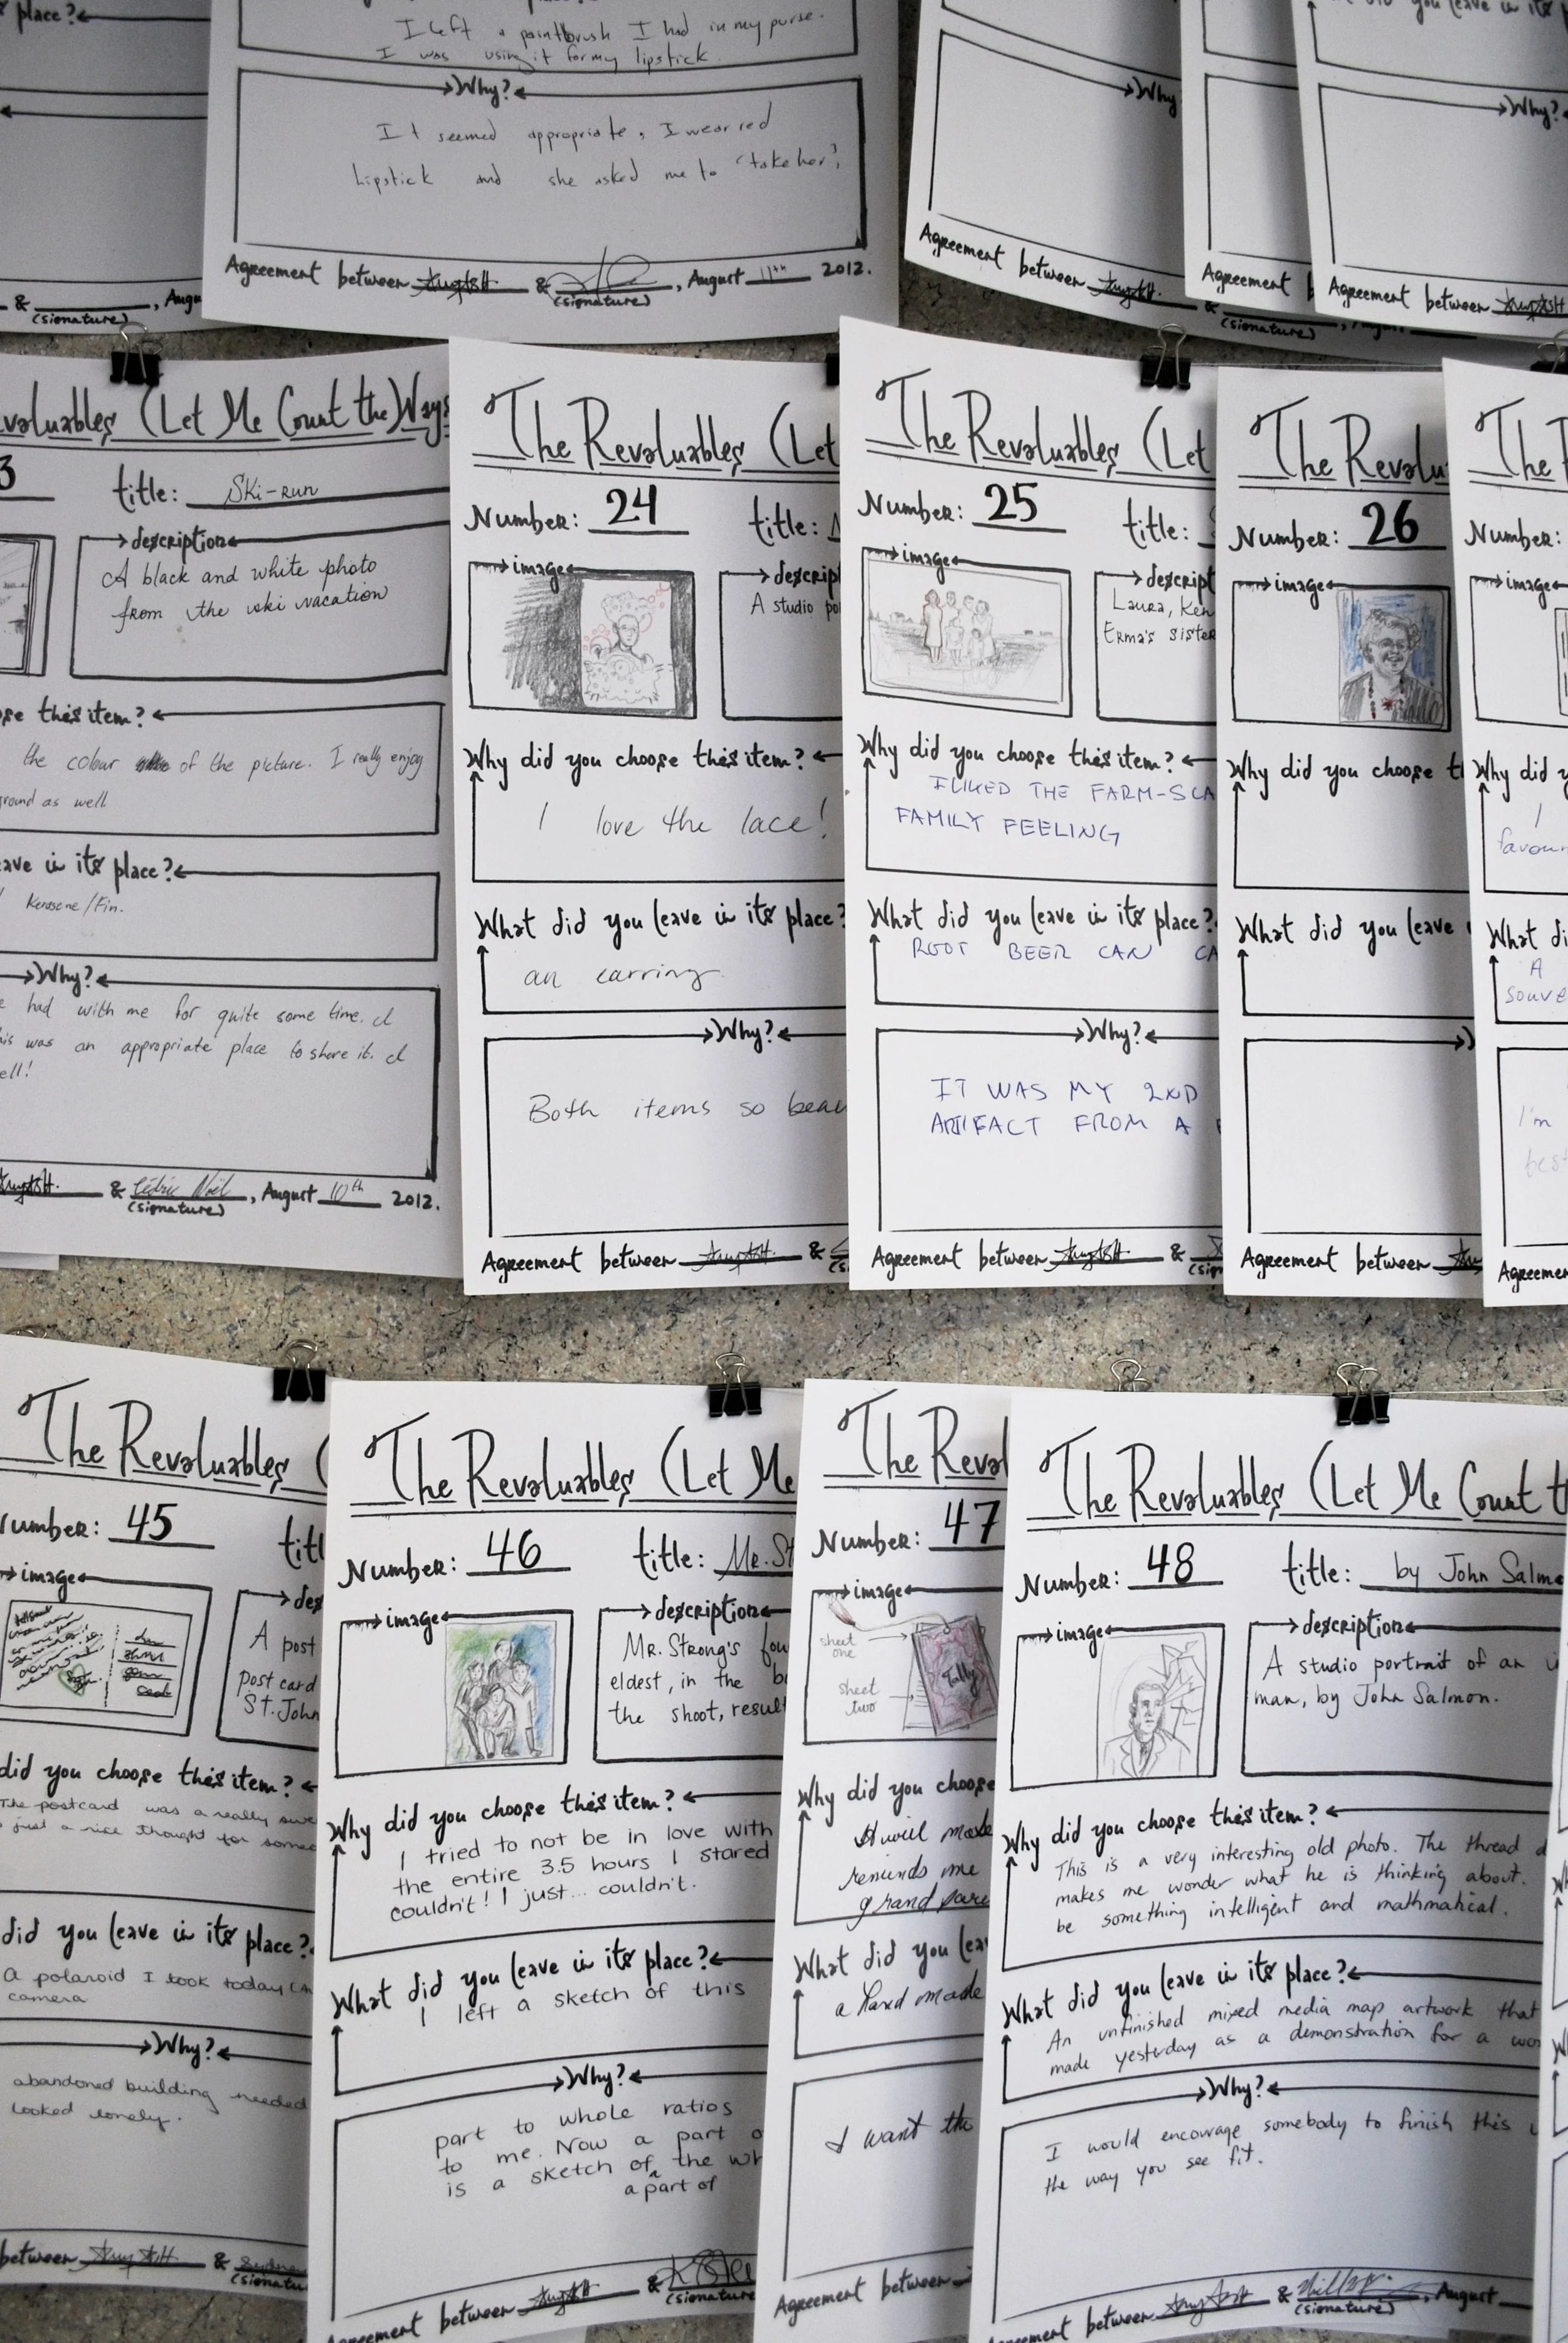 place?
& , Augu
(signature)
I left a paintbrush I had in my purse.
I was using it for my lipstick.
Why?
It seemed appropriate, I wear red
Lipstick and she asked me to "take her".
Agreement between & , August 11th 2012.
(signature)
Why
Agreement between
&
(signature)
Agreement b
did you leave in its
Why?
Agreement between
evaluables (Let Me Count the) Ways
3
title: Ski-run
description
A black and white photo
from the ski vacation
ose this item?
the colour of the picture. I really enjoy
ground as well
eave in its place?
Kerosene/Fin.
Why?
had with me for quite some time. I
his was an appropriate place to share it. I
ell!
& Cédric Noël, August 10th 2012.
(signature)
The Revaluables (Let
Number: 24
title:
image
descrip
A studio po
Why did you choose this item?
I love the lace!
What did you leave in its place?
an earring
Why?
Both items so beau
Agreement between &
The Revaluables (Let
Number: 25
title:
image
descript
Laura, Ken
Erma's sister
Why did you choose this item?
I LIKED THE FARM-SCA
FAMILY FEELING
What did you leave in its place?
ROOT BEER CAN CA
Why?
IT WAS MY 2ND
ARTIFACT FROM A
Agreement between &
(sign
The Revalu
Number: 26
image
Why did you choose t
What did you leave
Agreement between
The
Number:
image
Why did y
I
favour
What di
A
souve
I'm
best
Agreemen
The Revaluables (
Number: 45
titl
image
des
A post
post card
St. John
did you choose this item?
The postcard was a really swe
just a nice thought for someo
did you leave in its place?
A polaroid I took today
camera
Why?
abandoned building needed
looked lonely.
between &
(signatu
The Revaluables (Let Me
Number: 46
title: Mr. St
image
description
Mr. Strong's fou
eldest, in the b
the shoot, result
Why did you choose this item?
I tried to not be in love with
the entire 3.5 hours I stared
couldn't! I just... couldn't.
What did you leave in its place?
I left a sketch of this
Why?
part to whole ratios
to me. Now a part o
is a sketch of the wh
a part of
Agreement between &
(signature
The Reval
Number: 47
image
sheet
one
sheet
two
Tally
Why did you choose
reminds me
grand pare
What did you lea
a hand made
I want the
Agreement between
The Revaluables (Let Me Count t
Number: 48
title: by John Salm
image
description
A studio portrait of an
man, by John Salmon.
Why did you choose this item?
This is a very interesting old photo. The thread
makes me wonder what he is thinking about.
be something intelligent and mathmatical.
What did you leave in its place?
An unfinished mixed media map artwork that
made yesterday as a demonstration for a wor
Why?
I would encourage somebody to finish this
the way you see fit.
Agreement between & , August
(signature)